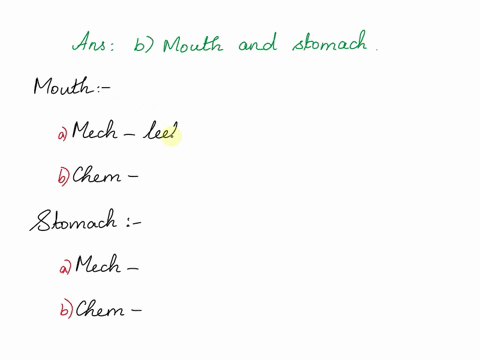 Ans: b) Mouth and stomach.
Mouth:-
a) Mech -
b) Chem -
Stomach :-
a) Mech -
b) Chem -